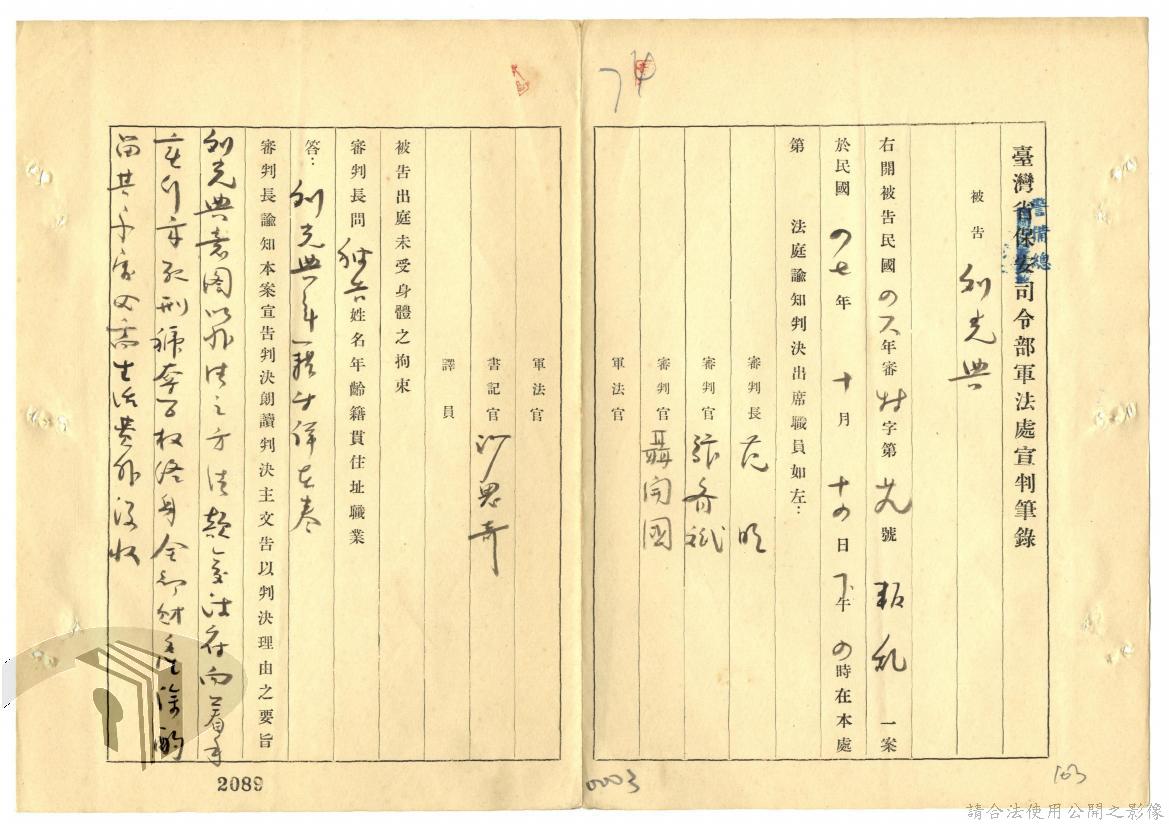 臺灣省保安司令部軍法處宣判筆錄
警備總
被告 劉光典
右開被告民國四七年審特字第 號 叛亂 一案
於民國四七年十月十四日下午四時在本處
第 法庭諭知判決出席職員如左：
審判長 范明
審判官 張齊斌
審判官 聶開國
軍法官
軍法官
書記官 沙思奇
譯員
被告出庭未受身體之拘束
審判長問 被告姓名年齡籍貫住址職業
答：劉光典年籍等詳在卷
審判長諭知本案宣告判決朗讀判決主文告以判決理由之要旨
劉光典意圖以非法之方法顛覆政府而著手
實行 處死刑褫奪公權終身全部財產除酌
留其家屬必需生活費外沒收
74
0003
103
2089
請合法使用公開之影像